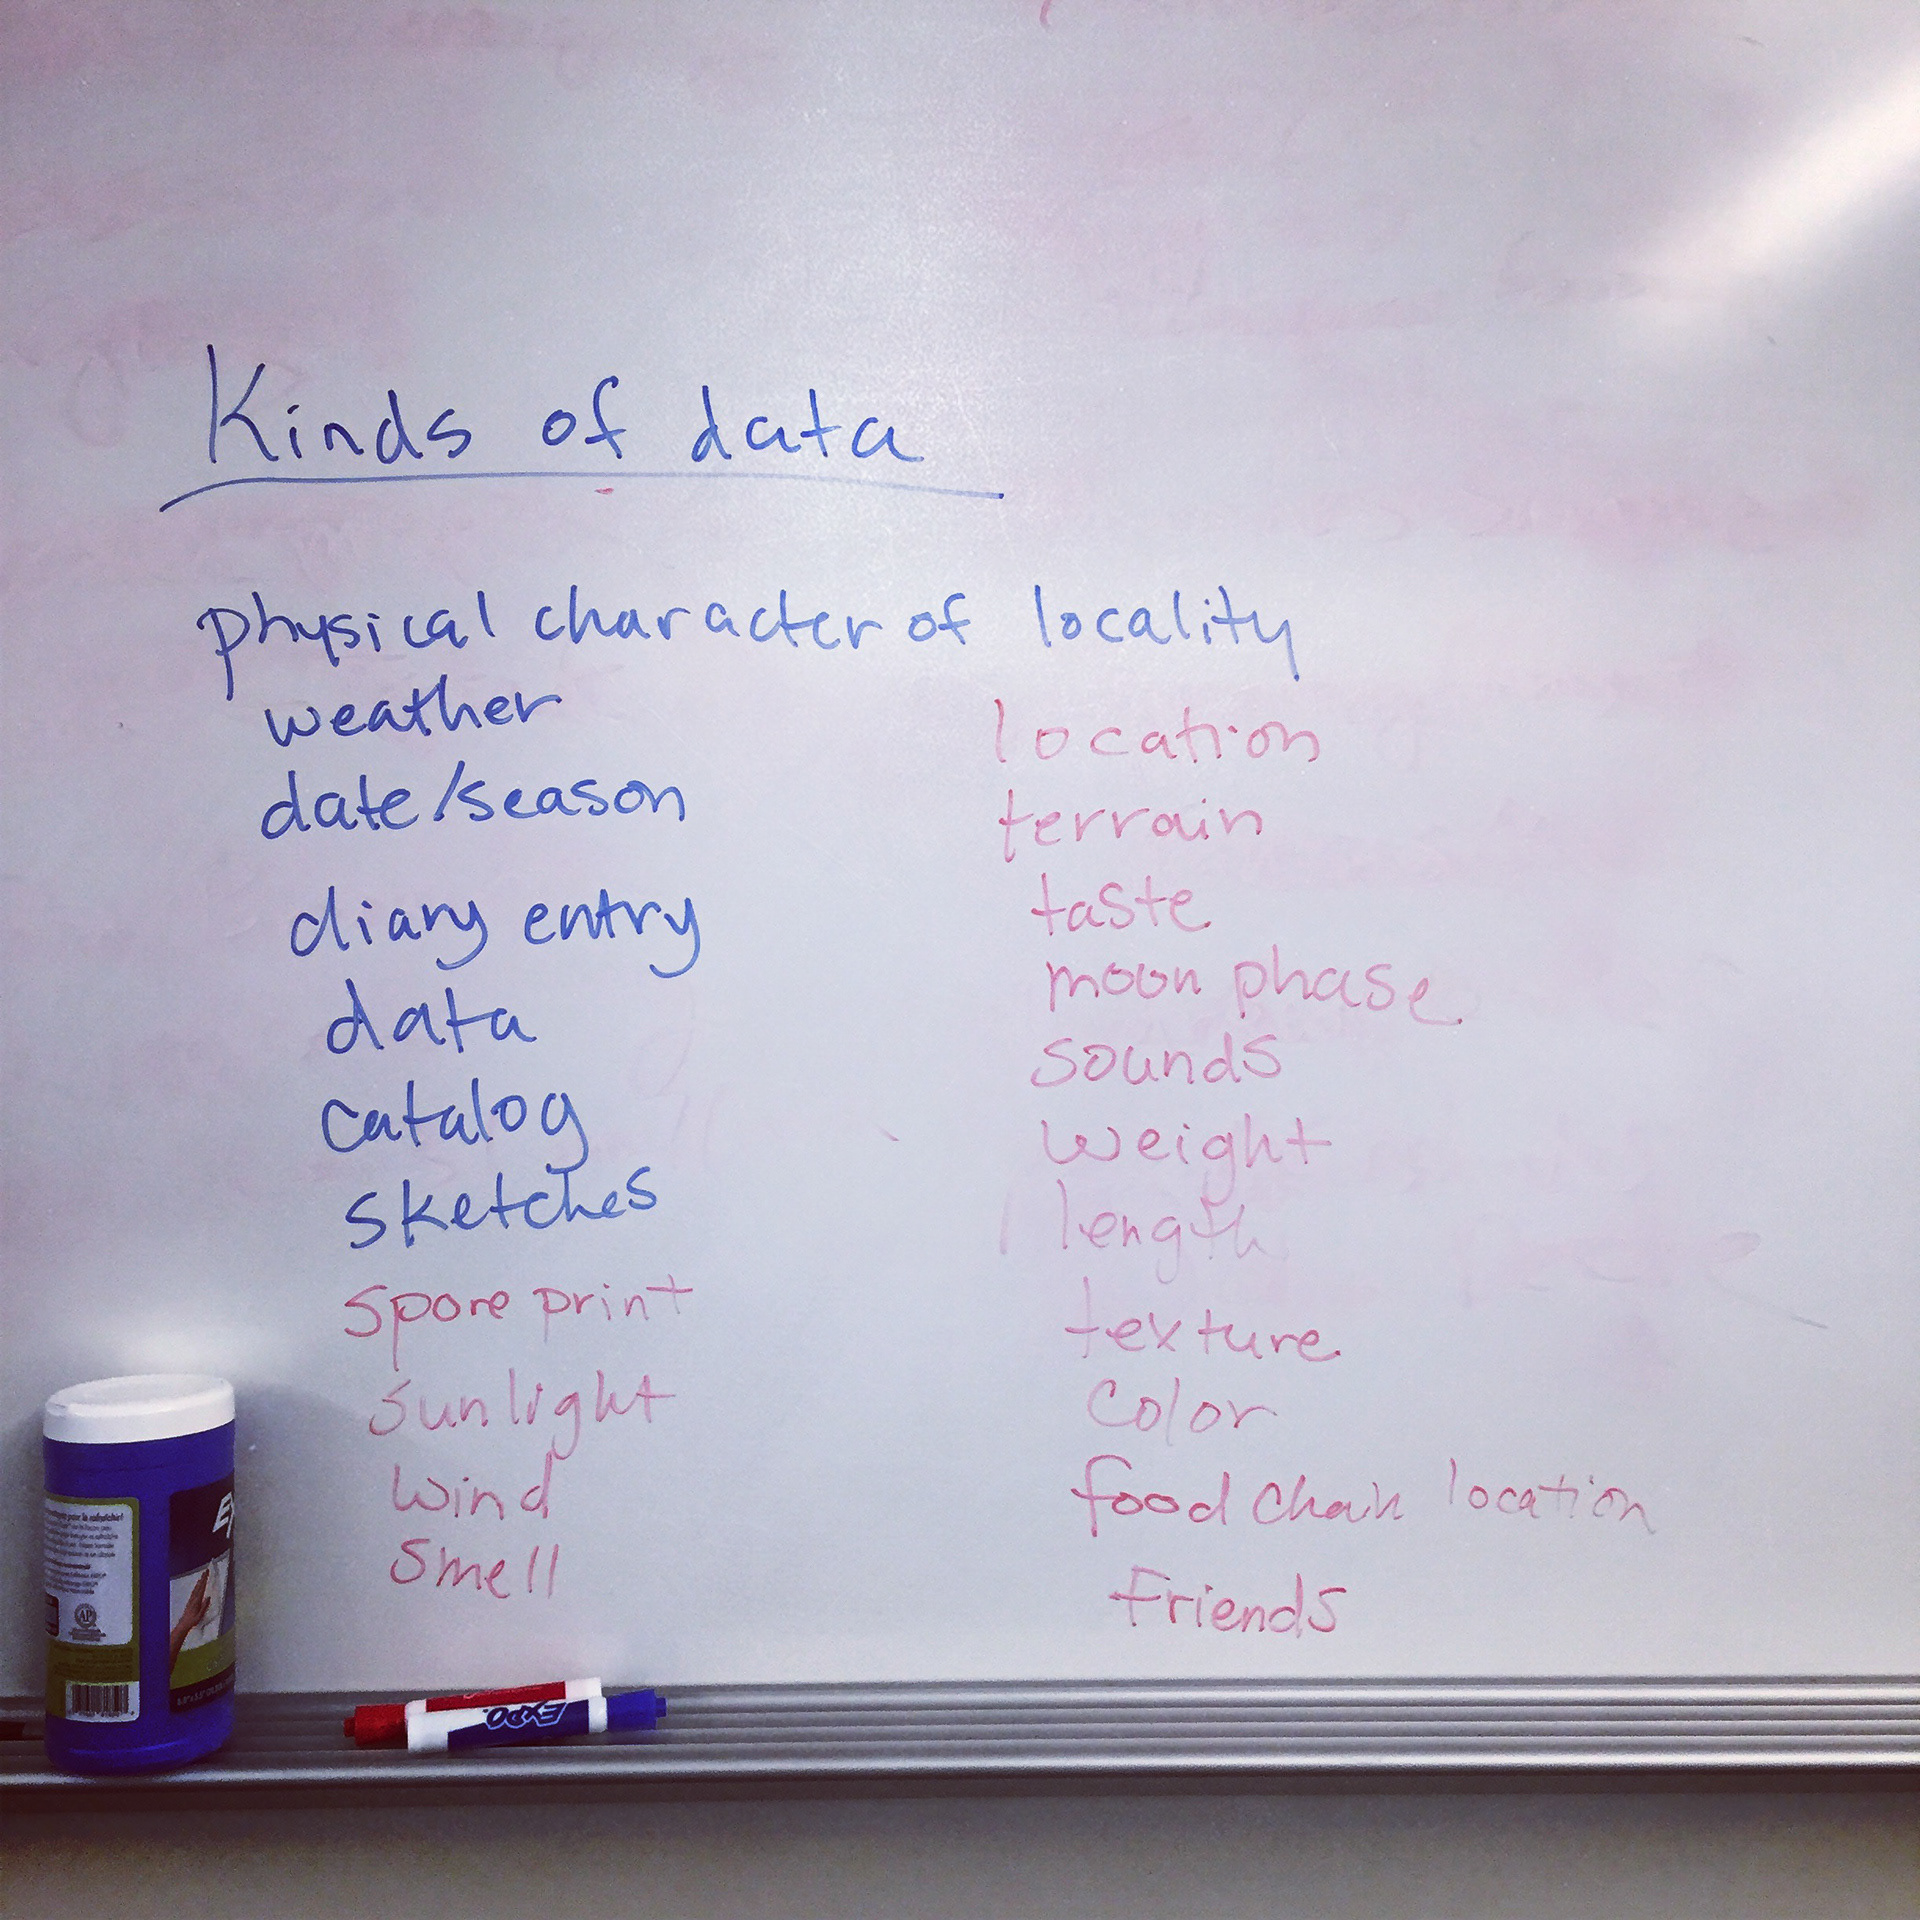 Kinds of data
physical character of locality
weather
date/season
diary entry
data
catalog
sketches
spore print
sunlight
wind
smell
location
terrain
taste
moon phase
sounds
weight
length
texture
color
food chain location
Friends
EXPO
AP